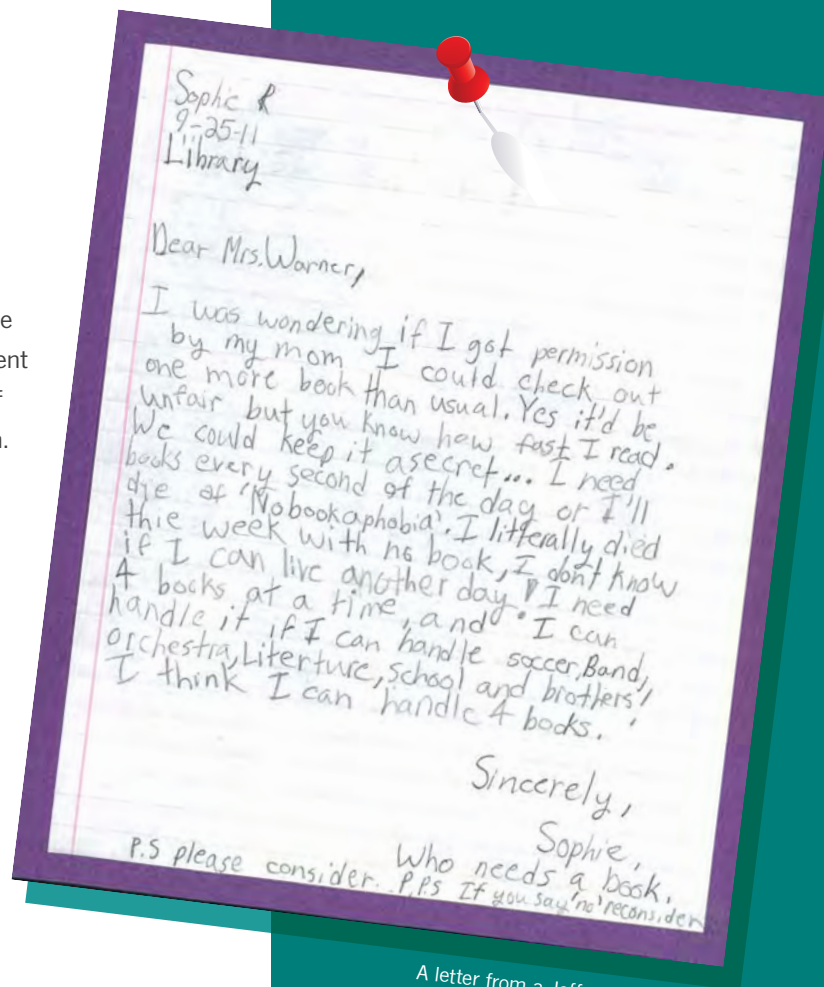 e
ent
f
n.
Sophie R
9-25-11
Library
Dear Mrs. Warner,
I was wondering if I got permission
by my mom I could check out
one more book than usual. Yes it'd be
unfair but you know how fast I read.
We could keep it asecret... I need
books every second of the day or I'll
die of 'Nobookaphobia'. I litterally died
thie week with no book, I don't know
if I can live another day! I need
4 books at a time, and I can
handle it if I can handle soccer, Band,
orchestra, Literture, school and brothers,
I think I can handle 4 books.
Sincerely,
Sophie,
Who needs a book.
P.S please consider. P.P.S If you say 'no' reconsider
A letter from a Jeff